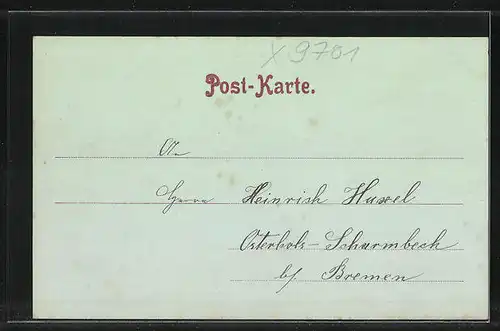 X 9701
Post-Karte.
An
Herrn Heinrich Hassel
Osterholz-Scharmbeck
b/ Bremen